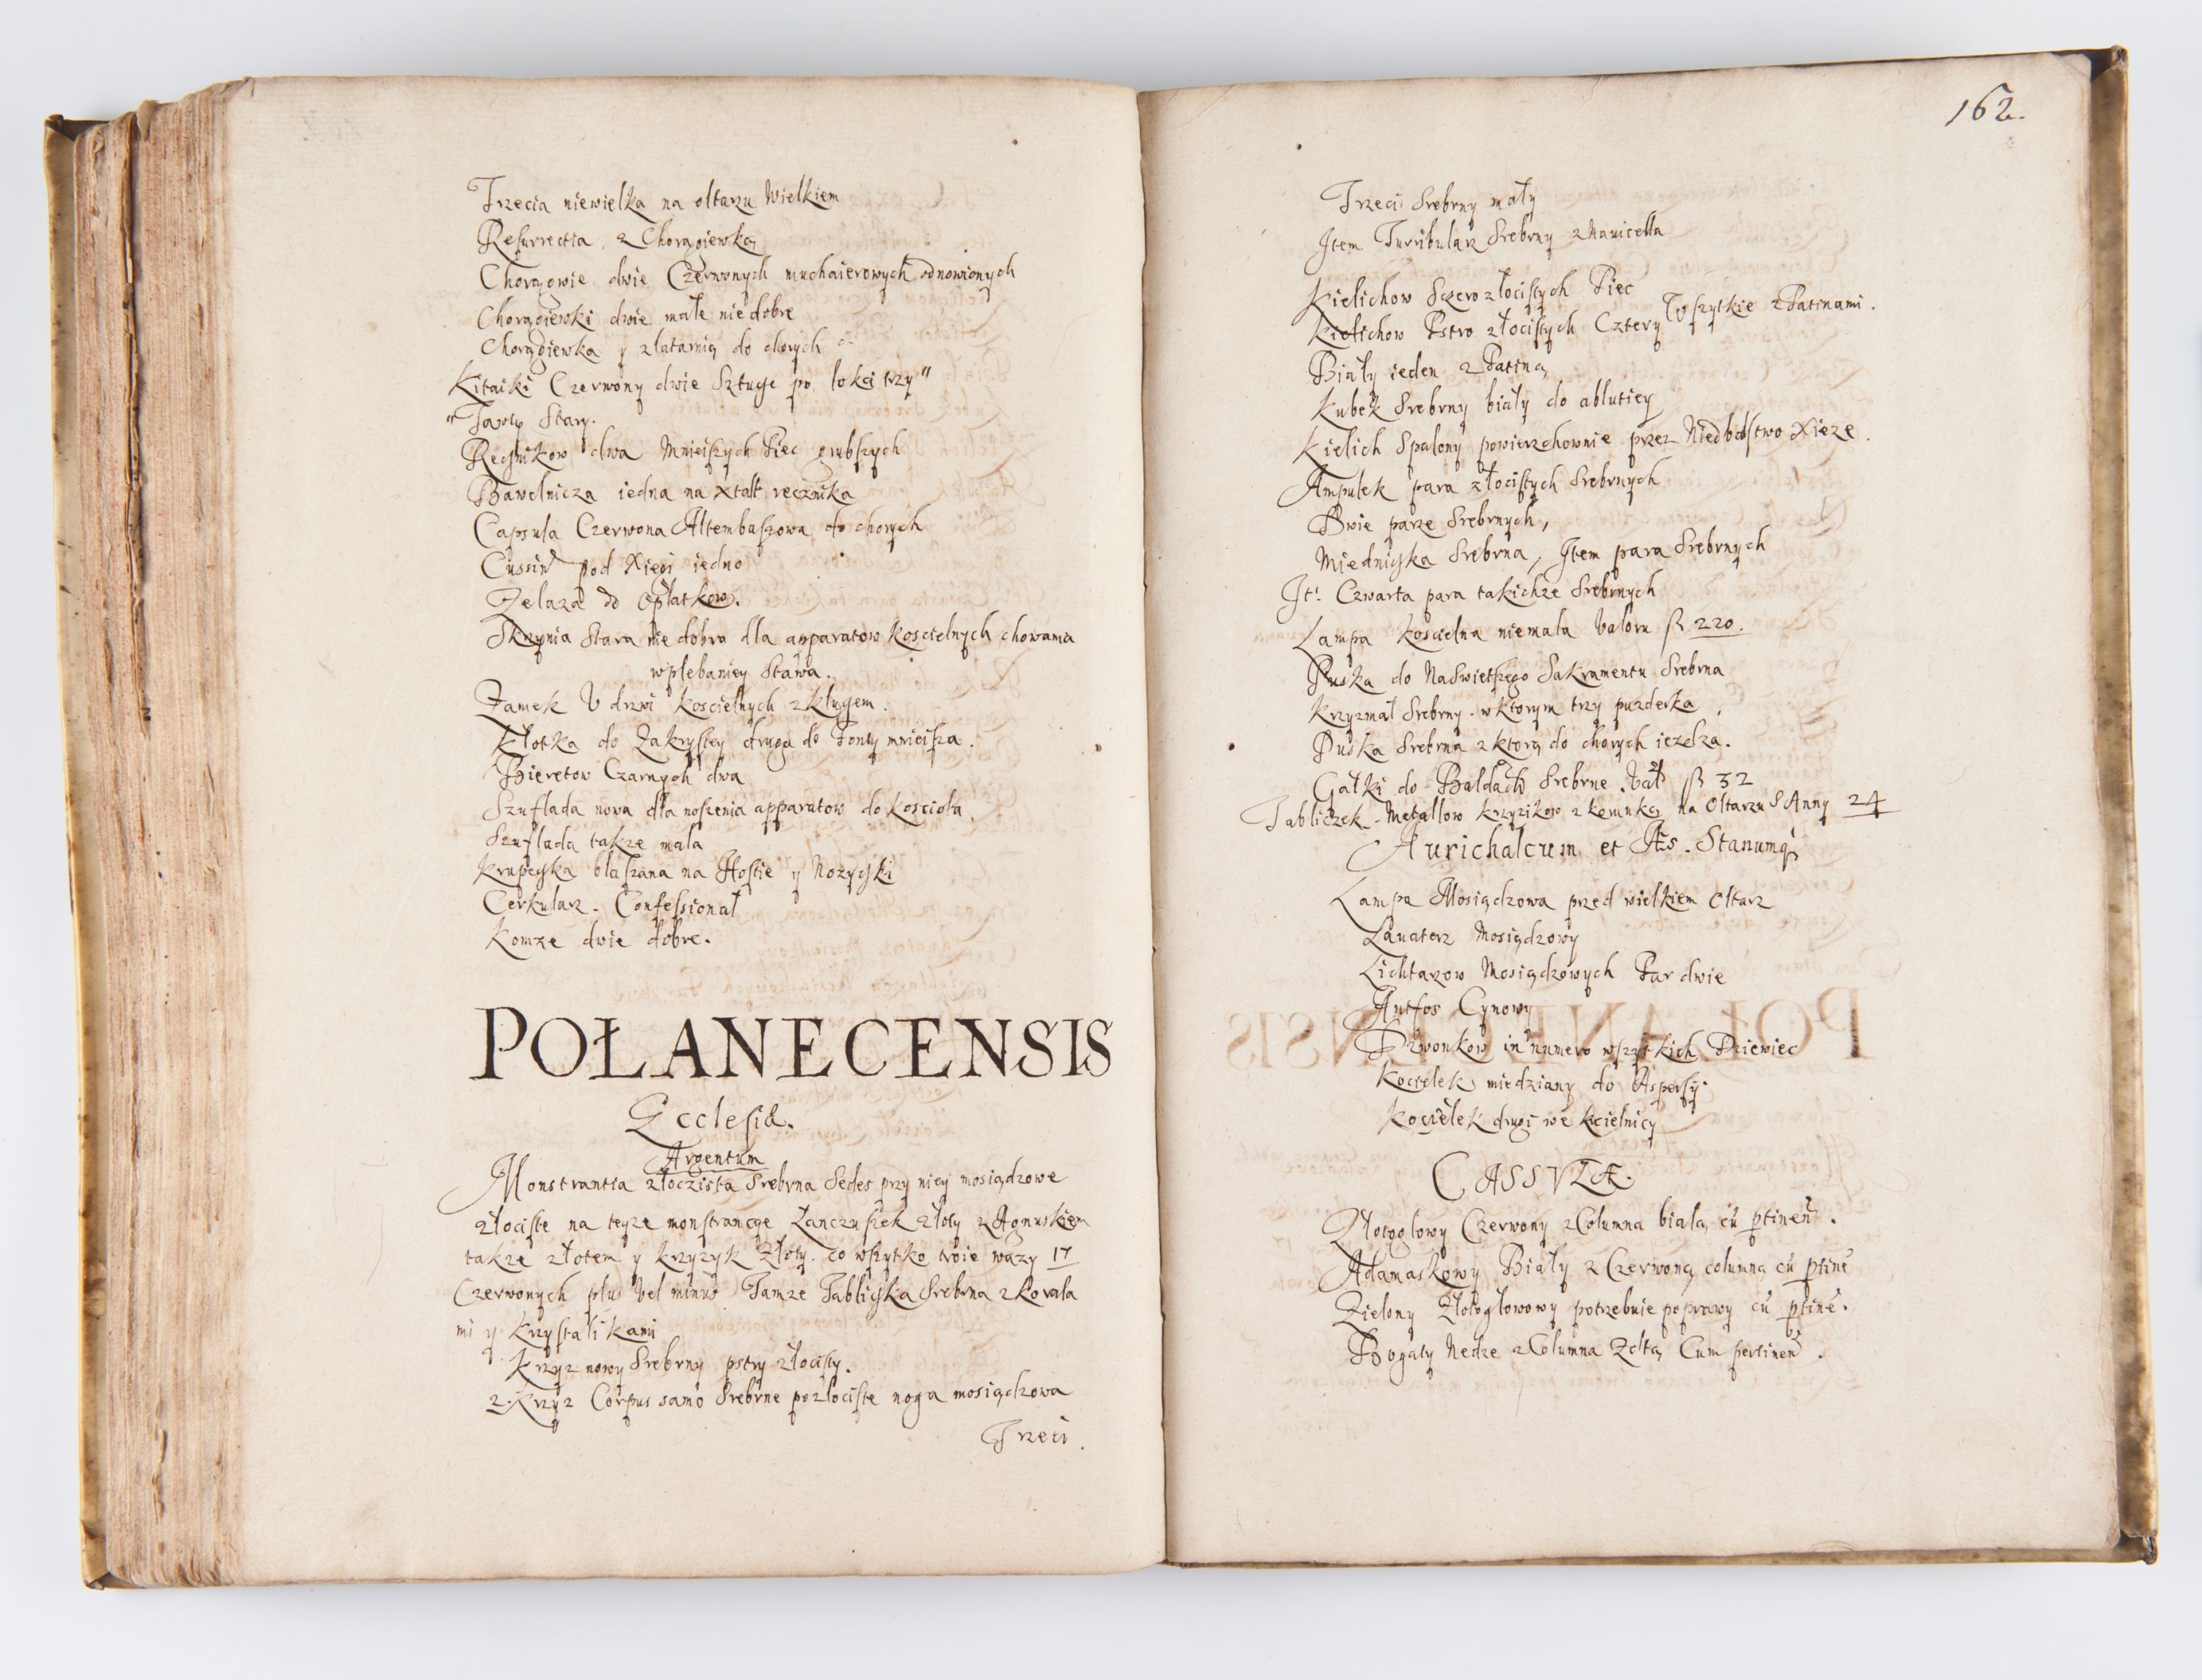 Trzecia niewielka na oltarzu Wielkiem
Resurrectia, z Chorągiewką
Chorągwie dwie Czerwonych muchaierowych odnowionych
Chorągiewki dwie małe nie dobre
Chorągiewka y z latarnią do chorych
Kitaiki Czerwony dwie Sztuce po lokci trzy
Stary.
Ręcznikow dwa Mnieiszych Piec grubszych
Bawelnicza iedna na xtalt recznika
Capsula Czerwona Altembaszowa do chorych
Cussin pod Xięgi iedno
Zelaza do Opłatkow.
Skrzynia Stara nie dobra dla apparatow Koscielnych chowania
w plebaniey Stawa.
Zamek U drzwi Koscielnych z kluczem.
Kłotka do Zakrystey druga do Fonty mnieisza.
Bieretow Czarnych dwa
Szuflada nova dla noszenia apparatow do kosciola,
Szuflada takze mala
Krupeczka blaszana na Hostie y Nożyczki
Cerkularz. Confessional
Komze dwie dobre.
POŁANECENSIS
Ecclesiæ.
Argentum
Monstrantia złoczista Srebrna Sedes przy niey mosiądzowe
złociste na teyze monstrancye Łanczuszek złoty z Agnuskiem
takze złotem y krzyzyk Złoty. co wszytko troie wazy 17
Czerwonych plus vel minus Tamze Tabliczka Srebrna z Korala
mi y Krzystalikami
Krzyz nowy Srebrny pstry złocisty.
2. Krzyz Corpus samo Srebrne pozlociste noga mosiądzowa
Trzeci.
162.
Trzeci Srebrny mały
Item Turribularz Srebrny z Navicella
Kielichow Szczerozłocistych Piec
Kielichow Pstro złocistych Cztery Wszytkie z Patinami.
Biały ieden z Patiną
Kubek Srebrny biały do ablutiey
Kielich Spalony powierzchownie przez Niedbalstwo Xięze.
Ampulek para złocistych Srebrnych
Dwie parze Srebrnych,
Miedniczka Srebrna, Item para Srebrnych
It. Czwarta para takichze Srebrnych
Lampa Koscielna niemala Valoru fl 220.
Puska do Naswietszego Sakramentu Srebrna
Krzyzmal Srebrny. w ktorym trzy puzderka,
Puska Srebrna z ktorą do chorych iezdza.
Gałki do Baldach Srebrne. Val fl 32
Tabliczek. Metallow krzyzikow z koronką na Oltarzu S Anny 24
Aurichalcum et Æs. Stanumq
Lampa Mosiądzowa przed wielkiem Oltarz
Lavaterz Mosiądzowy
Lichtarzow Mosiądzowych Par dwie
Antfos Cynowy
Dzwonkow in numero wszytkich Dziewiec
Kocielek miedziany do Aspersy.
Kocielek drugi we krcielnicy
CASSVLÆ.
Złotoglowy Czerwony z Columna białą cū ptineñ.
Adamaskowy Biały z Czerwoną columną cū ptinē
Zielony Złotogłowowy potrzebuie poprawy cū ptinē.
Bogaty Nedze z Columna Zołtą Cum pertineñ.